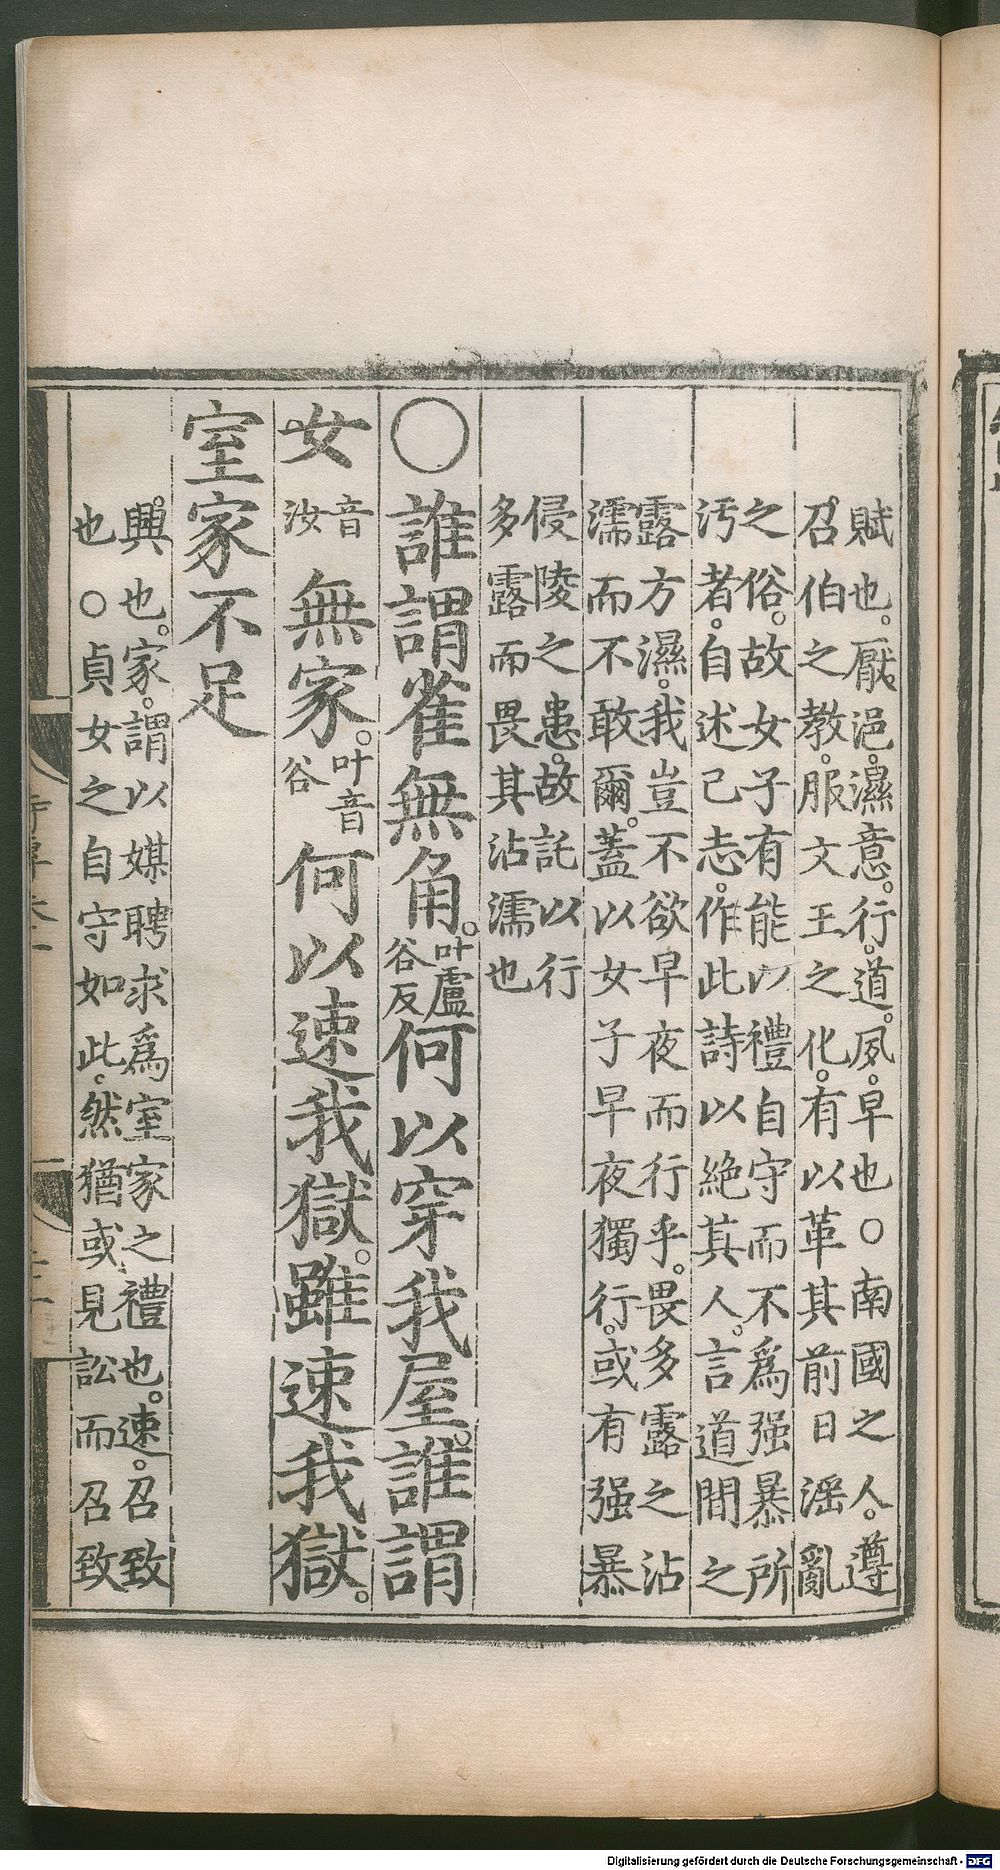 賦也。厭浥。濕意。行。道。夙。早也○南國之人。遵
召伯之教。服文王之化。有以革其前日淫亂
之俗。故女子有能以禮自守而不爲强暴所
汚者。自述己志。作此詩以絶其人。言道間之
露方濕。我豈不欲早夜而行乎。畏多露之沾
濡而不敢爾。蓋以女子早夜獨行。或有强暴
侵陵之患。故託以行
多露而畏其沾濡也
○誰謂雀無角。叶盧谷反何以穿我屋。誰謂
女音汝無家。叶音谷何以速我獄。雖速我獄。
室家不足
興也。家。謂以媒聘求爲室家之禮也。速。召致
也○貞女之自守如此。然猶或見訟而召致
Digitalisierung gefördert durch die Deutsche Forschungsgemeinschaft - DFG